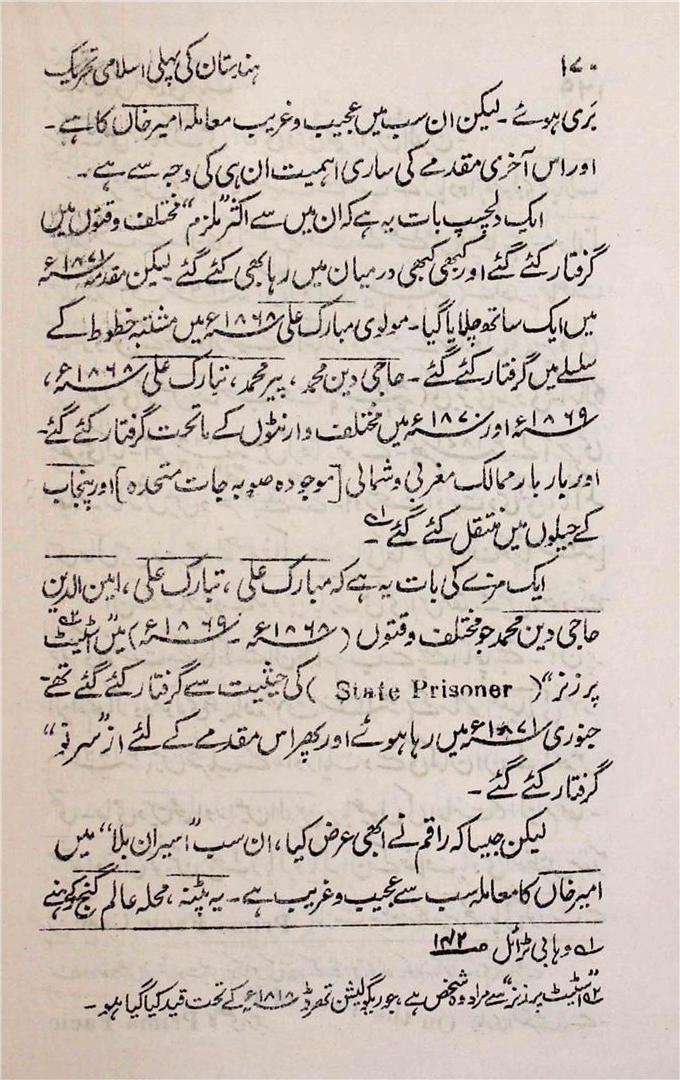 ۱۷۰ ہندستان کی پہلی اسلامی تحریک
بَری ہوئے ۔ لیکن ان سب میں عجیب و غریب معاملہ امیر خاں کا ہے ۔
اور اس آخری مقدمے کی ساری اہمیت ان ہی کی وجہ سے ہے ۔
ایک دلچسپ بات یہ ہے کہ ان میں سے اکثر ”ملزم“ مختلف وقتوں میں
گرفتار کئے گئے اور کبھی کبھی درمیان میں رہا بھی کئے گئے ۔ لیکن مقدمہ ۱۸۷۱ء
میں ایک ساتھ چلایا گیا ۔ مولوی مبارک علی ۱۸۶۸ء میں مشتبہ خطوط کے
سلسلے میں گرفتار کئے گئے ۔ حاجی دین محمد ، پیر محمد ، تبارک علی ۱۸۶۸ء ،
۱۸۶۹ء اور ۱۸۷۰ء میں مختلف وارنٹوں کے ماتحت گرفتار کئے گئے ۔
اور بار بار ممالک مغربی و شمالی [موجودہ صوبہ جات متحدہ] اور پنجاب
کے جیلوں میں منتقل کئے گئے ۱؎ ۔
ایک مزے کی بات یہ ہے کہ مبارک علی ، تبارک علی ، امین الدین
حاجی دین محمد جو مختلف وقتوں (۱۸۶۸ء ۔ ۱۸۶۹ء) میں ”اسٹیٹ ۲؎
پرزنر“ (State Prisoner) کی حیثیت سے گرفتار کئے گئے تھے ۔
جنوری ۱۸۷۱ء میں رہا ہوئے اور پھر اس مقدمے کے لئے از ”سر نو“
گرفتار کئے گئے ۔
لیکن جیسا کہ راقم نے ابھی عرض کیا ، ان سب ”اسیران بلا“ میں
امیر خاں کا معاملہ سب سے عجیب و غریب ہے ۔ یہ پٹنہ ، محلہ عالم گنج کے رہنے
۱؎ وہابی ٹرائل ص۱۴۲
۲؎ ”اسٹیٹ پرزنر“ سے مراد وہ شخص ہے ، جو ریگولیشن تھرڈ ۱۸۱۸ء کے تحت قید کیا گیا ہو ۔